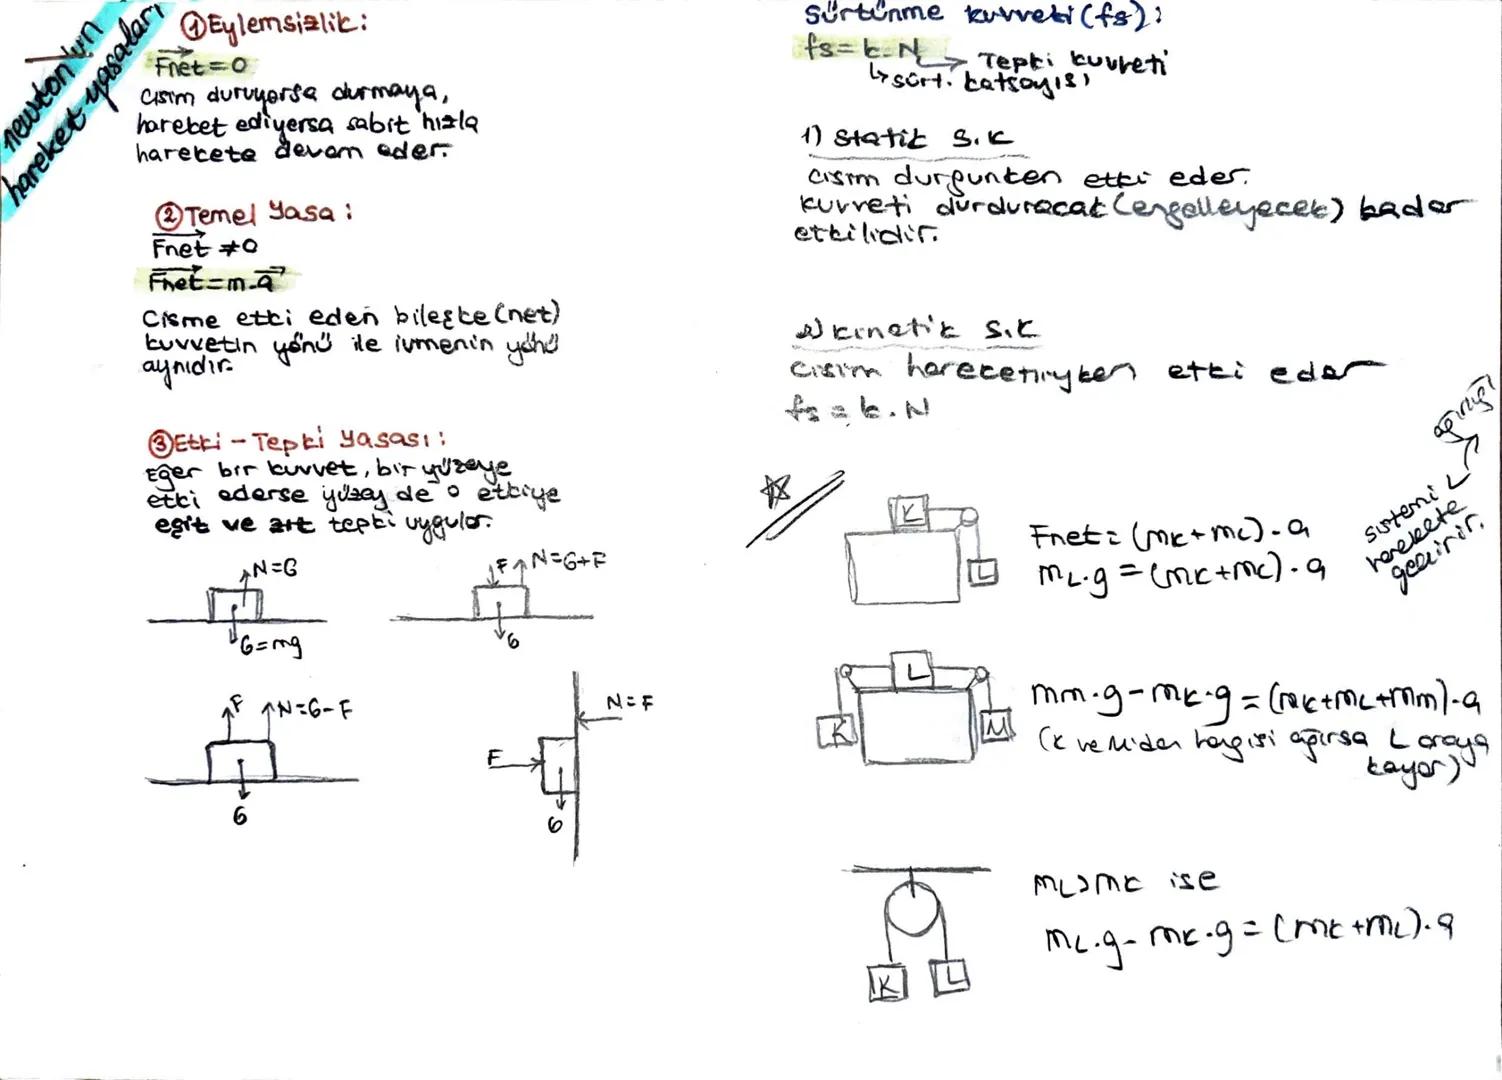 newton'un
hareket yasaları
①Eylemsizlik:
Fnet=0
cisim duruyorsa durmaya,
hareket ediyersa sabit hızla
harekete devam eder.
②Temel Yasa:
Fnet≠0
Fnet=m.a
Cisme etki eden bileşke (net)
kuvvetin yönü ile ivmenin yönü
aynıdır.
③Etki-Tepki Yasası:
Eğer bir kuvvet, bir yüzeye
etki ederse yüzey de o etkiye
eşit ve zıt tepki uygular.
N=G
G=mg
F
N=G+F
G
F
N=G-F
G
N=F
F
G
Sürtünme kuvveti (fs):
fs=k.N
Tepki kuvveti
sürt. katsayısı
1) Statik S.K
cisim durgunken etki eder.
kuvveti durduracak (engelleyecek) kadar
etkilidir.
2) kinetik S.K
cisim hareketliyken etki eder
fs=k.N
K
L
Fnet=(mK+mL).a
mL.g=(mK+mL).a
ağırlığı
sistemi
harekete
geçirir.
L
K
M
mm.g-mK.g=(mK+mL+mm).a
(K ve M'den hangisi ağırsa L oraya
kayar)
mL>mK ise
mL.g-mK.g=(mK+mL).a
K
L